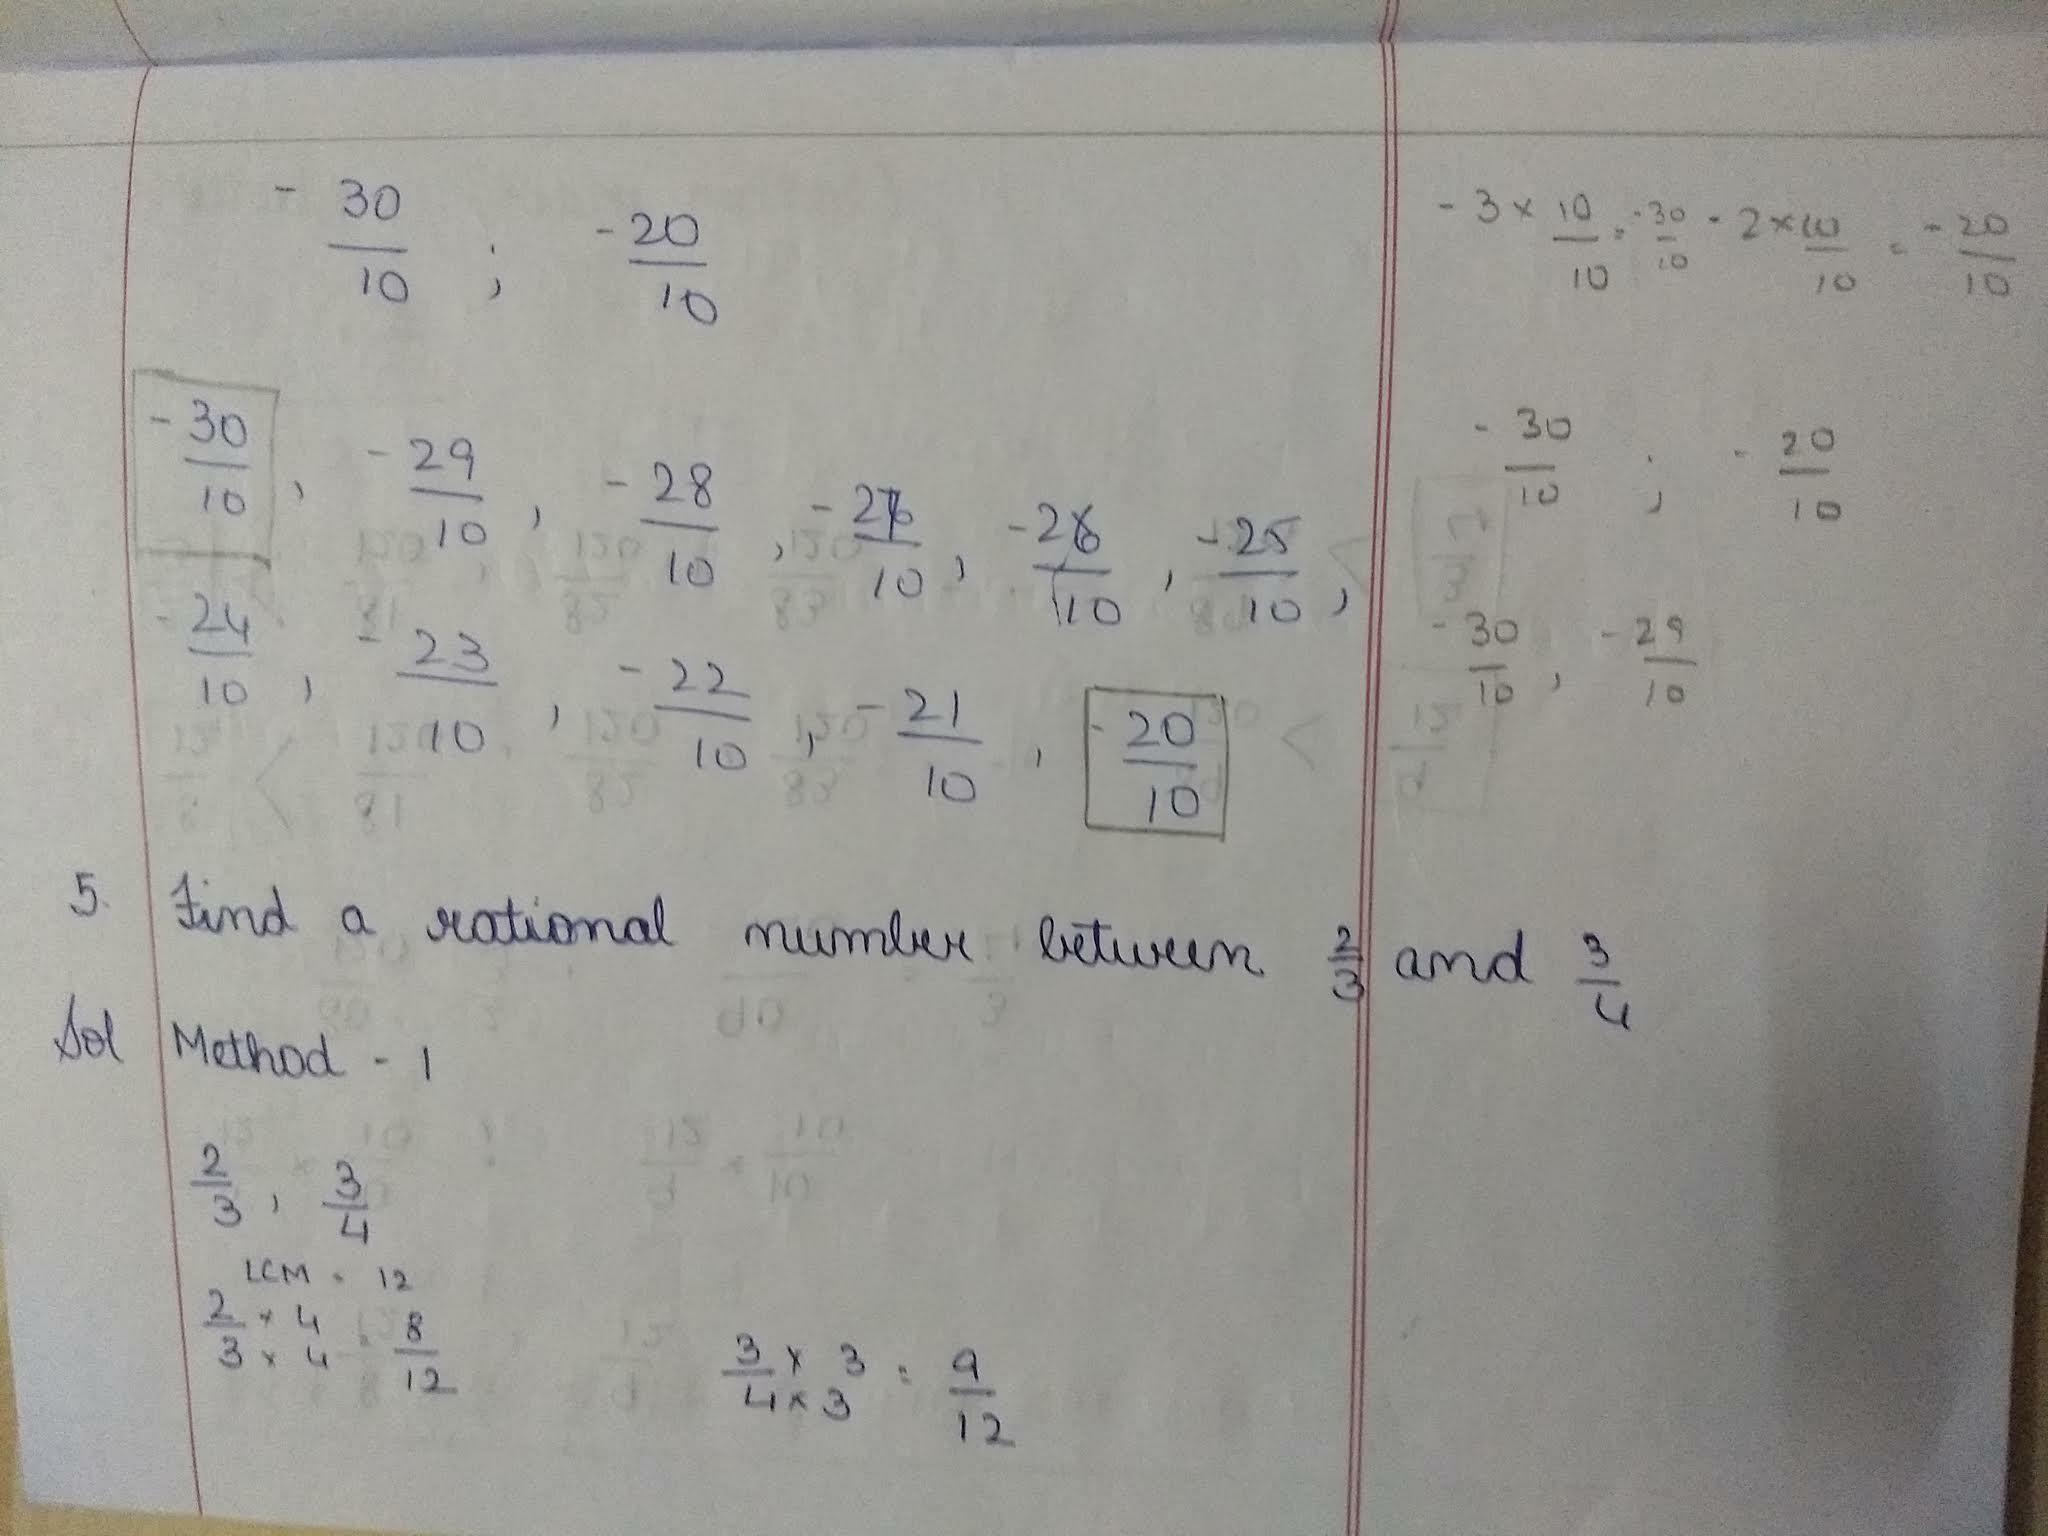 -30/10 ; -20/10
-3 × 10/10 = -30/10 -2 × 10/10 = -20/10
-30/10, -29/10, -28/10, -27/10, -26/10, -25/10,
-24/10, -23/10, -22/10, -21/10, -20/10
-30/10 ; -20/10
-30/10, -29/10
5. Find a rational number between 2/3 and 3/4
Sol Method - 1
2/3, 3/4
LCM = 12
2/3 × 4/4 = 8/12 3/4 × 3/3 = 9/12